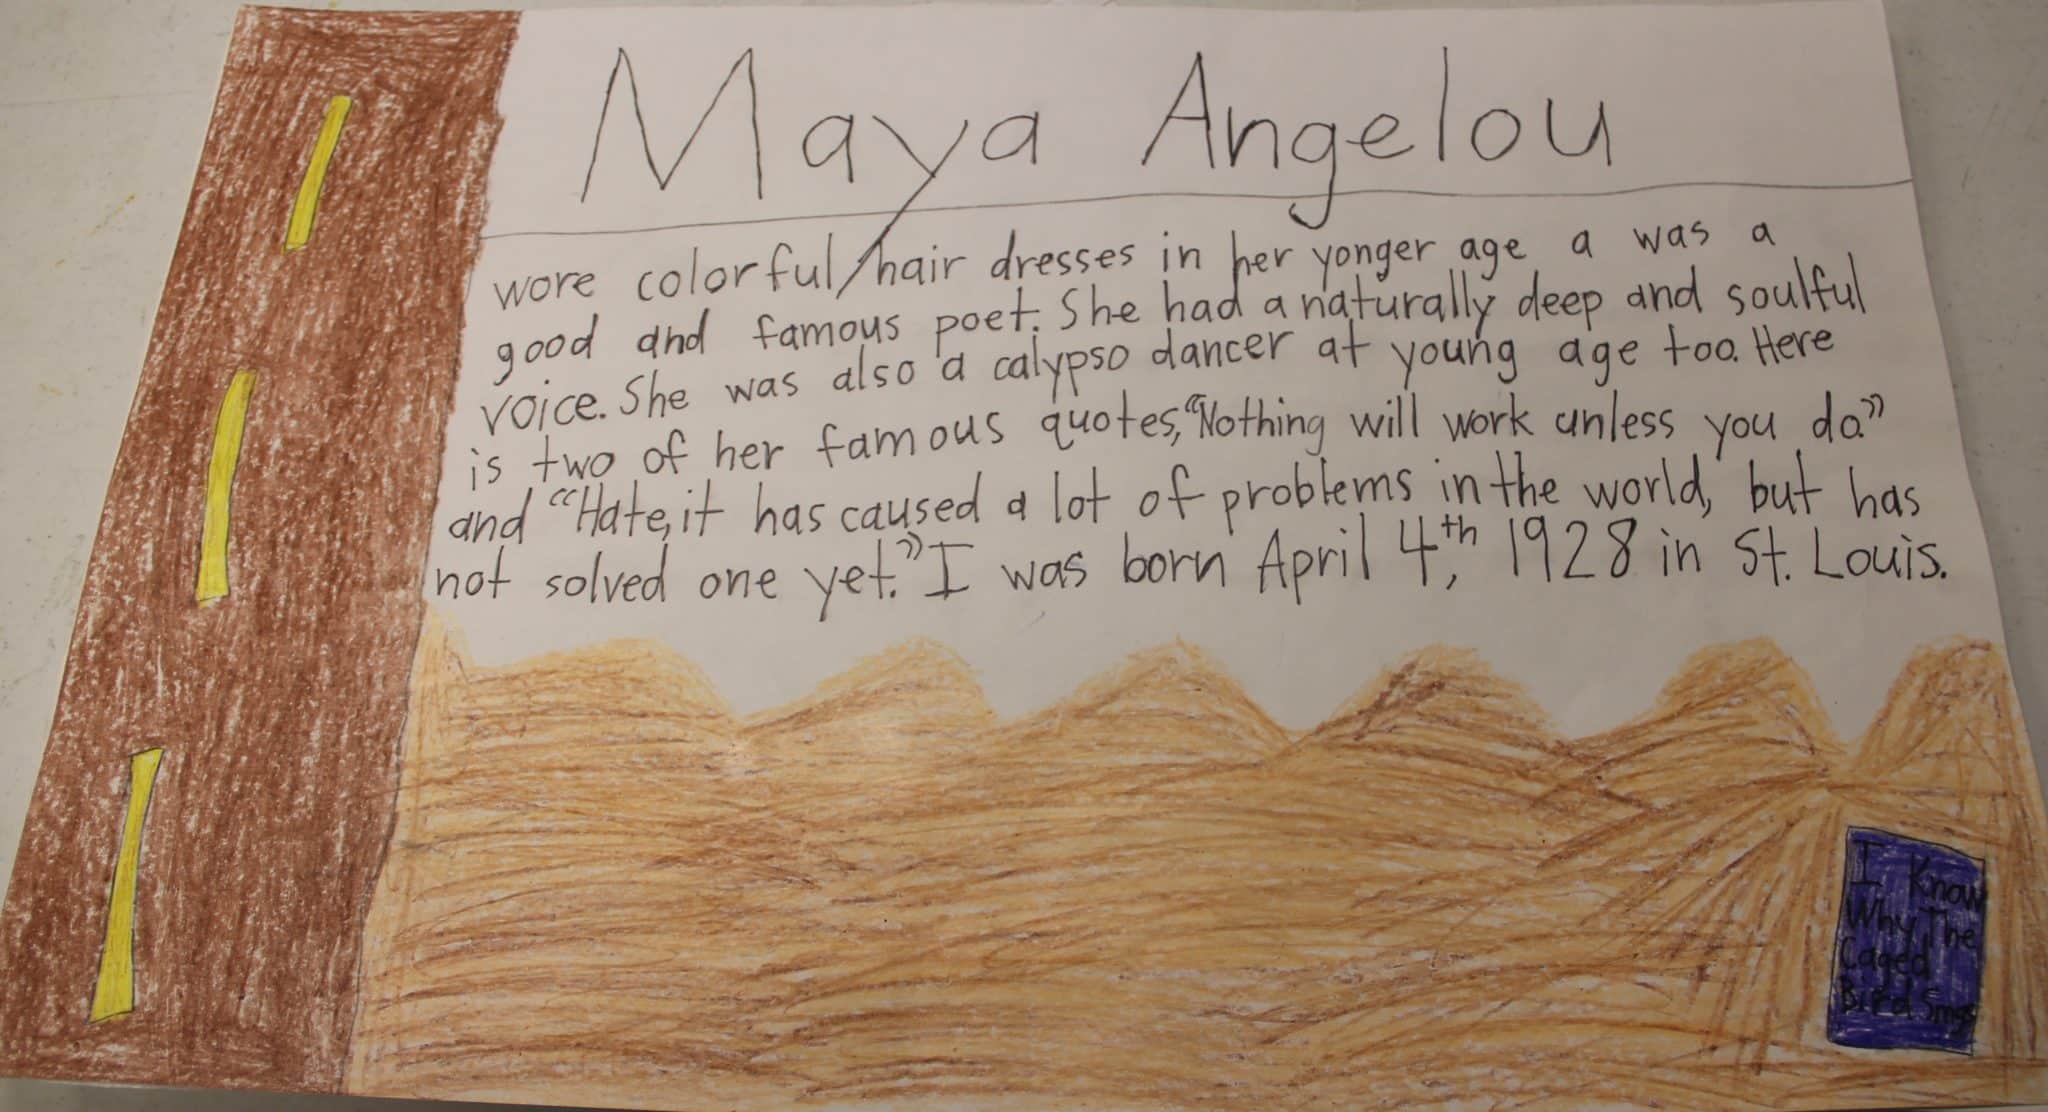 Maya Angelou
wore colorful hair dresses in her yonger age a was a
good and famous poet. She had a naturally deep and soulful
voice. She was also a calypso dancer at young age too. Here
is two of her famous quotes, "Nothing will work unless you do."
and "Hate, it has caused a lot of problems in the world, but has
not solved one yet." I was born April 4th, 1928 in St. Louis.
I Know
Why The
Caged
Bird Sings